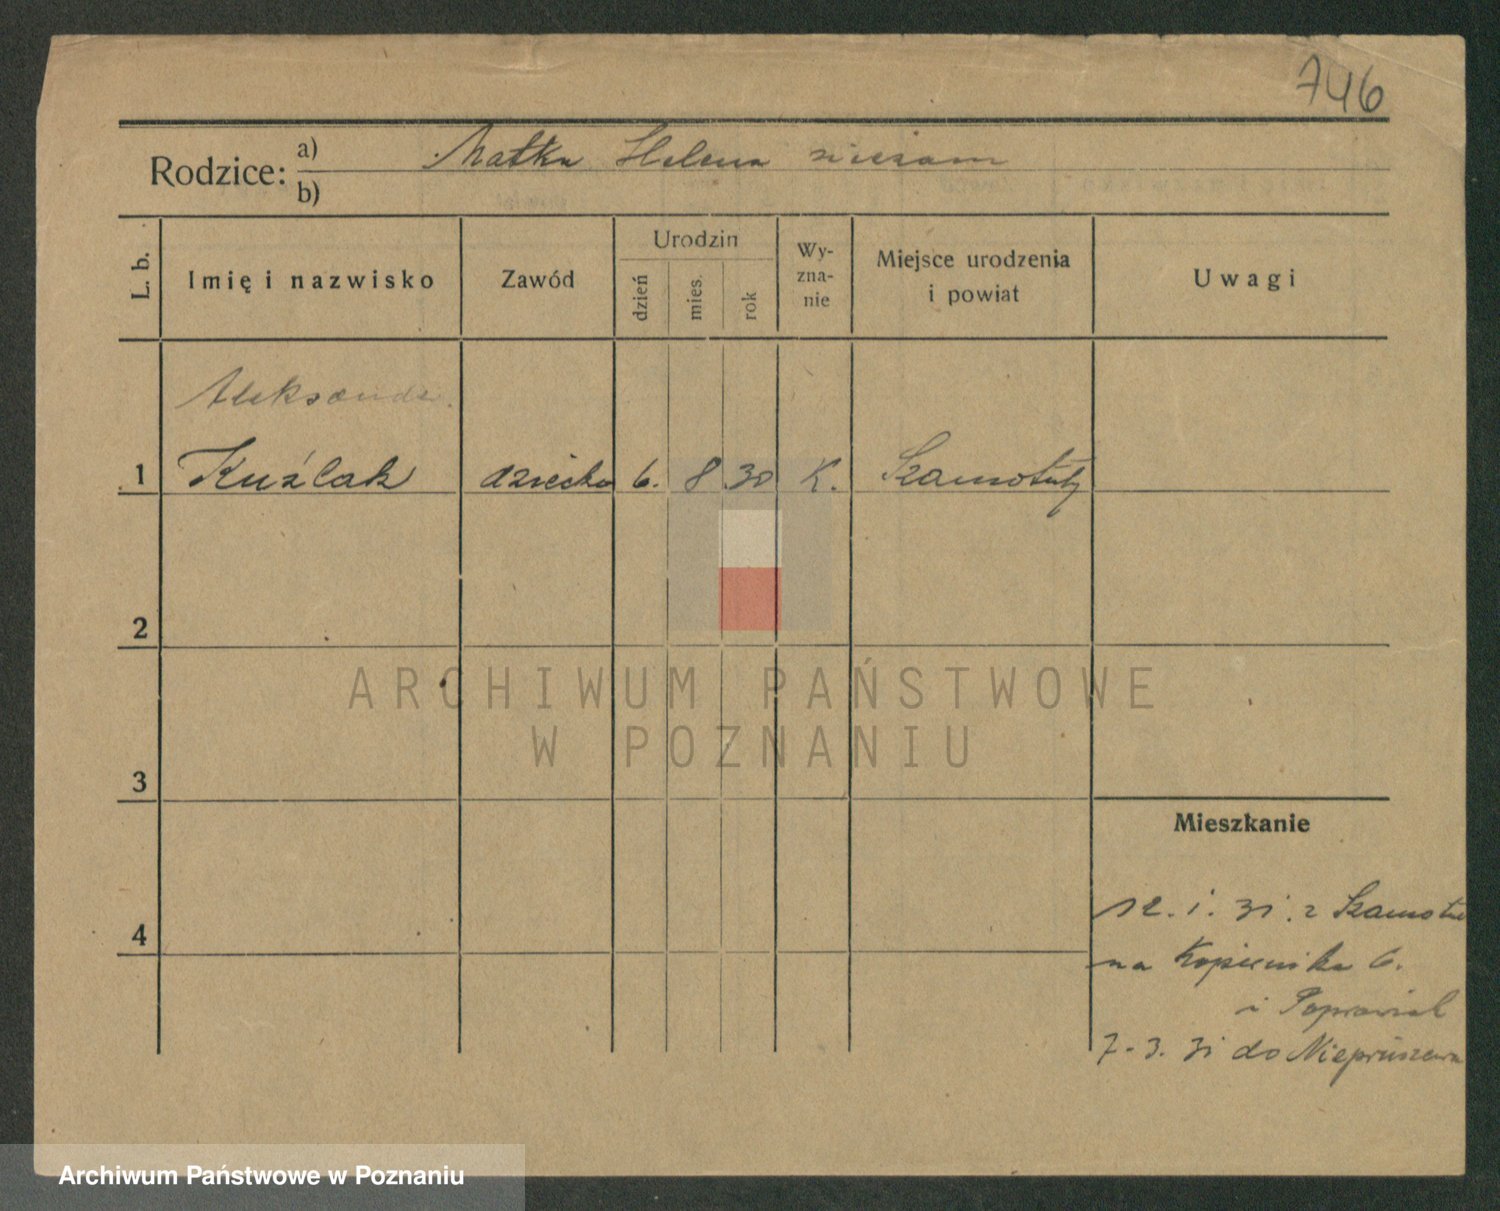 746
Rodzice: a) Matka Helena niezam
b)
L. b.
Imię i nazwisko
Zawód
Urodzin
dzień
mies.
rok
Wy-
zna-
nie
Miejsce urodzenia
i powiat
Uwagi
Aleksander
1 Kuźlak dziecko 6. 8 30 K. Szamotuły
2
ARCHIWUM PAŃSTWOWE
W POZNANIU
3
Mieszkanie
12. 1. 31. z Szamotuł
na Kopernika 6.
4
i
7-3. 31 do Niepruszewa
Archiwum Państwowe w Poznaniu